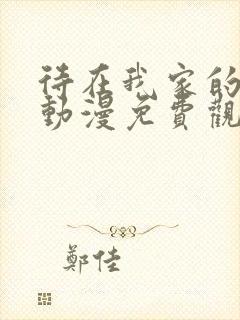 待在我家的
動漫免費觀
鄭佳